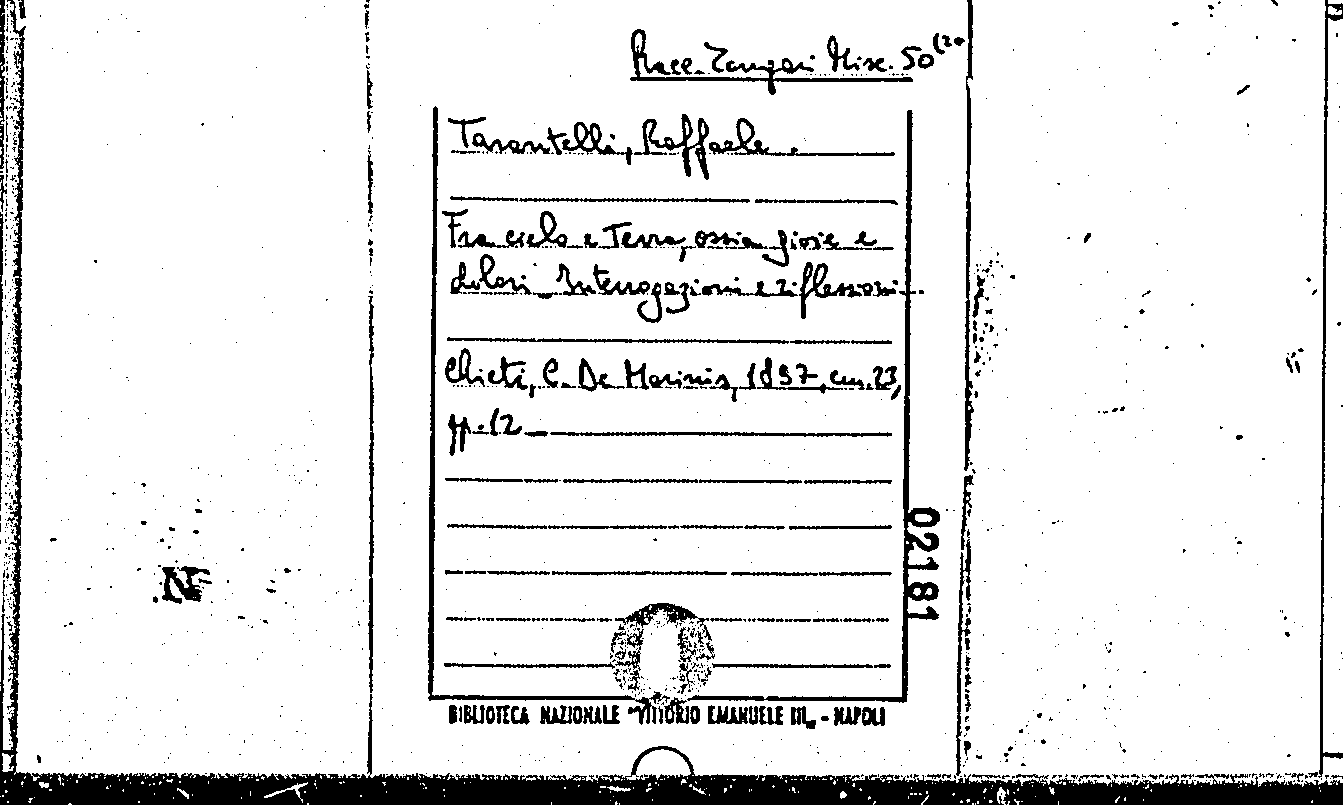 Racc. Zangari Misc. 50(20
Tarantelli, Raffaele.
Fra cielo e Terra, ossia gioie e
dolori. Interrogazioni e riflessioni.
Chieti, C. De Marinis, 1897, cm. 23,
pp. 12
02181
BIBLIOTECA NAZIONALE "VITTORIO EMANUELE III" - NAPOLI